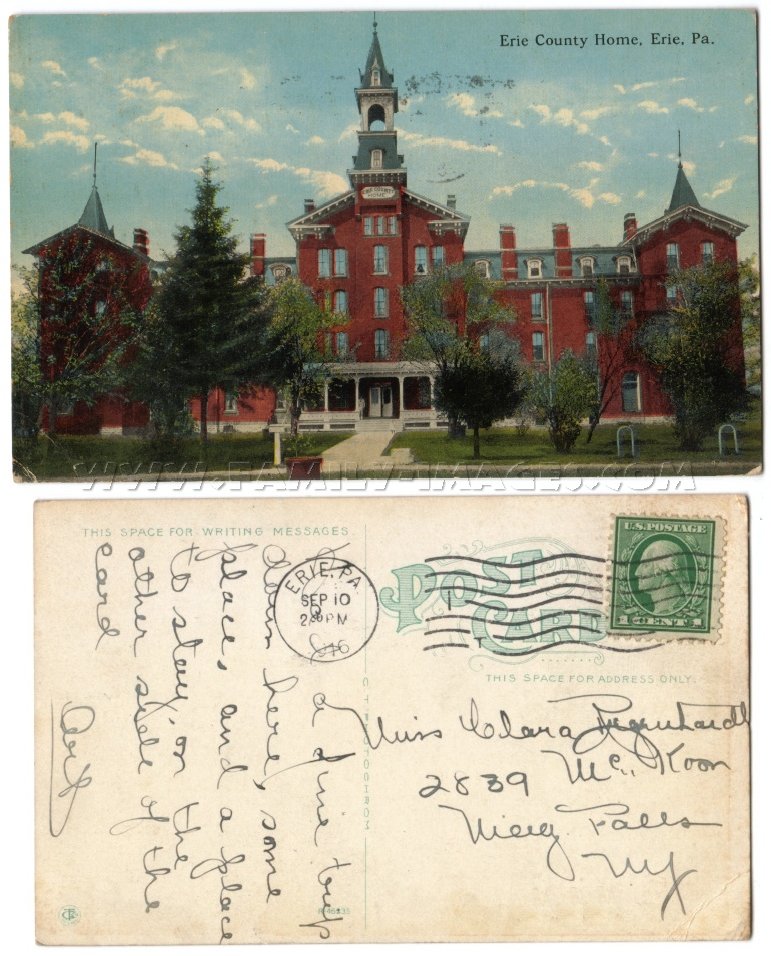 Erie County Home, Erie, Pa.
ERIE COUNTY
HOME
WWW.FAMILY-IMAGES.COM
THIS SPACE FOR WRITING MESSAGES.
a fine trip
down here, some
place, and a place
to stay, on the
other side of the
card
ERIE, PA.
SEP 10
PM
POST
CARD
U.S. POSTAGE
1 CENT 1
THIS SPACE FOR ADDRESS ONLY.
Miss Clara
2839 Mc. Koon
Niag. Falls
NY
C.T. PHOTOCHROM